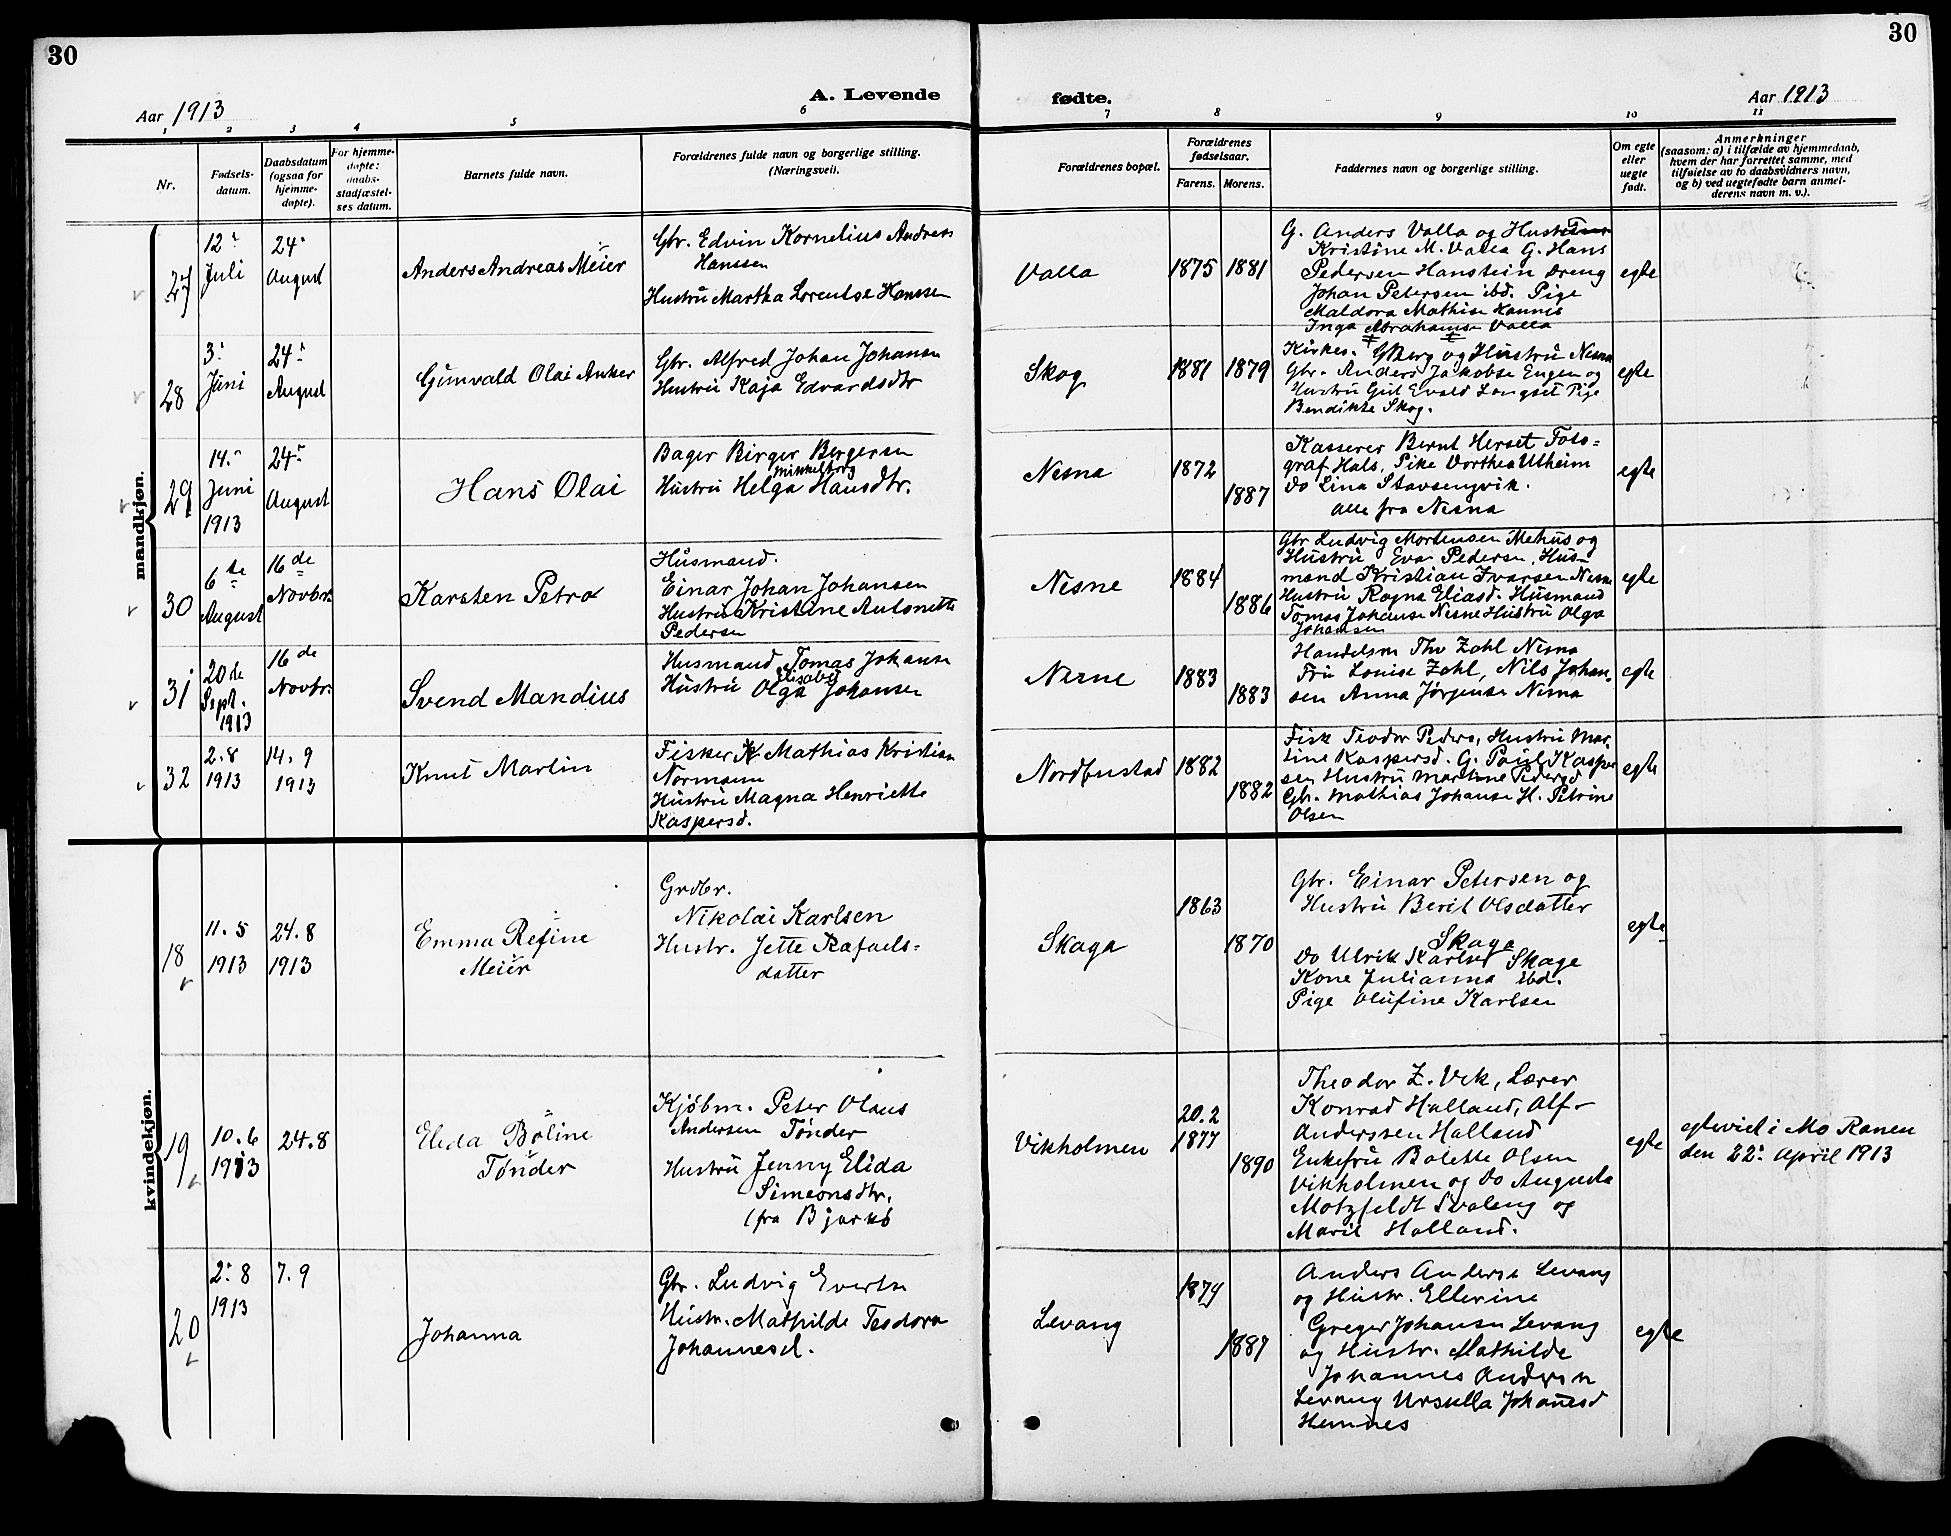 30
30
Aar 1913
A. Levende
fødte.
Aar 1913
1 2 3 4 5 6 7 8 9 10 11
Nr.
Fødsels-
datum.
Daabsdatum
(ogsaa for
hjemme-
døpte).
For hjemme-
døpte:
daabs-
stadfæstel-
ses datum.
Barnets fulde navn.
Forældrenes fulde navn og borgerlige stilling.
(Næringsvei).
Forældrenes bopæl.
Forældrenes
fødselsaar.
Farens. Morens.
Faddernes navn og borgerlige stilling.
Om egte
eller
uegte
født.
Anmerkninger
(saasom: a) i tilfælde av hjemmedaab,
hvem der har forrettet samme, med
tilføielse av to daabsvidners navn,
og b) ved uegtefødte barn anmel-
derens navn m. v.).
mandkjøn.
27
12
Juli
24
August
Anders Andreas Meier
Gbr. Edvin Kornelius Andreas
Hanssen
Hustru Martha Lorentse Hanssen
Valla
1875 1881
G. Anders Valla og Hustru
Kristine M. Valla G. Hans
Pedersen Hanstein Dreng
Johan Petersen ibd. Pige
Maldora Mathise Hannes
Inga Abrahamse Valla
egte
28
3
Juni
24
August
Gunvald Olai Anker
Gbr. Alfred Johan Johansen
Hustru Kaja Edvardsdtr
Skog
1881 1879
Kirkes. og Hustru Nesna
Gbr. Anders Jakobse Engen og
Hustru Evald Langset Pige
Bendikte Skog.
egte
29
14
Juni
1913
24
August
Hans Olai
Bager Birger Bergersen
Mikkelborg
Hustru Helga Hansdtr.
Nesna
1872
1887
Kasserer Bernt Herset Foto-
graf Hals, Pike Dorthea Utheim
Do Lina Stavsengvik.
alle fra Nesna
egte
30
6te
August
16de
Novbr.
Karsten Petra
Husmand.
Einar Johan Johansen
Hustru Kristine Antonette
Pedersen
Nesne
1884
1886
Gbr Ludvig Mortensen Mehus og
Hustru Eva Pedersen, Hus-
mand Kristian Ivarsen Nesne
Hustru Ragna Eliasd. Husmand
Tomas Johanse Nesne Hustru Olga
Johansen
egte
31
20de
Sept.
1913
16de
Novbr.
Svend Mandius
Husmand Tomas Johanse
Elisabet
Hustru Olga Johansen
Nesne
1883
1883
Handelsm Thv Zahl Nesna
Fru Louise Zahl, Nils Johan-
sen Anna Jørgense Nesna
egte
32
2.8
1913
14.9
1913
Knut Martin
Fisker K Mathias Kristian
Normann
Hustru Magna Henriette
Kaspersd.
Nordbustad
1882
1882
Fisk Teodor Peders, Hustru Mar-
tine Kaspersd. G. Paul Kasper
sen Hustru Martine Pedersd
Gbr. Mathias Johanse H. Petrine
Olsen
egte
kvindekjøn.
18
11.5
1913
24.8
1913
Emma Refine
Meier
Grdbr.
Nikolai Karlsen
Hustr. Jette Rafaels-
datter
Skaga
1863
1870
Gbr. Einar Petersen og
Hustru Berit Olsdatter
Skaga
Do Ulrik Karlsen Skage
Kone Julianna ibd.
Pige Olufine Karlsen
egte
19
10.6
1913
24.8
Elida Boline
Tønder
Kjøbm. Peter Olaus
Andersen Tønder
Hustru Jenny Elida
Simeonsdtr.
(fra Bjarkö
Vikholmen
20.2
1877
1890
Theodor Z. Vik, Lærer
Konrad Halland, Alf-
Anderssen Halland
Enkefru Bolette Olsen
Vikholmen og Do Augusta
Motzfeldt Svaleng og
Marit Halland.
egte
egteviet i Mo Ranen
den 22. April 1913
20
2.8
1913
7.9
Johanna
Gbr. Ludvig Evertse
Hustr. Mathilde Teodora
Johannesd.
Levang
1879
1887
Anders Anderse Levang
og Hustr. Ellerine
Greger Johansen Levang
og Hustr. Mathilde
Johannes Andersen
Levang Ursulla Johanesd
Hemnes
egte